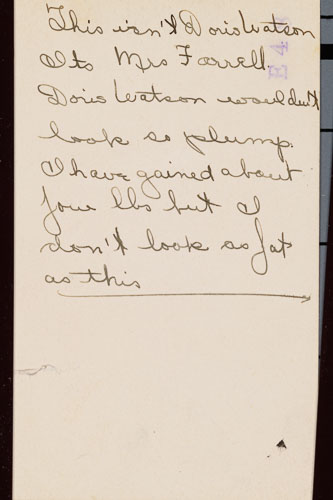 This isn't Doris Watson
Its Mrs Farrell.
Doris Watson wouldn't
look so plump.
I have gained about
four lbs but I
don't look as fat
as this